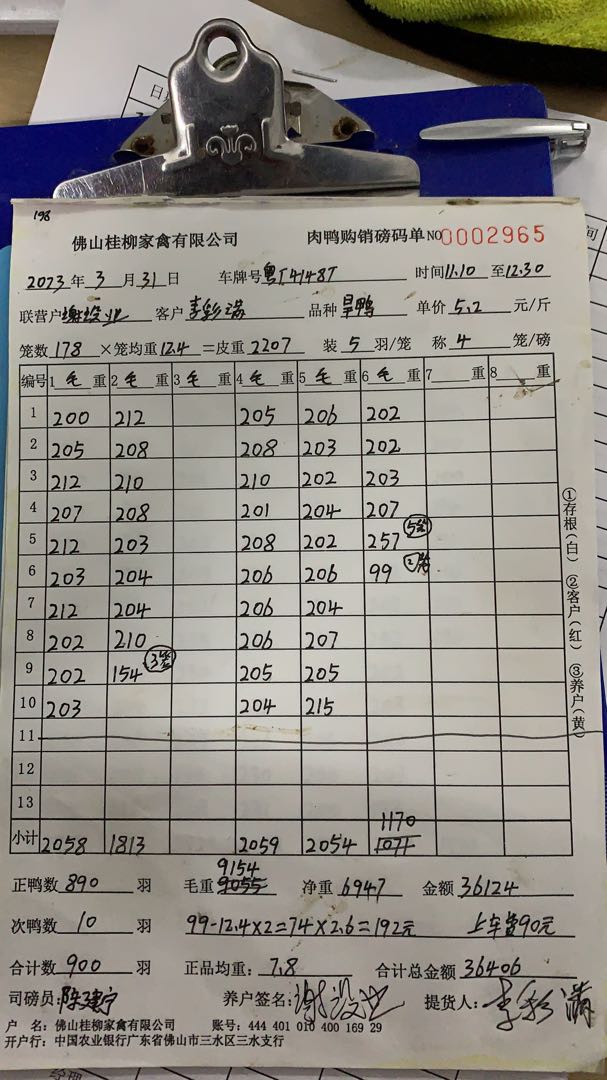 198
佛山桂柳家禽有限公司 肉鸭购销磅码单 NO 0002965
2023 年 3 月 31 日 车牌号 时间 11.10 至 12.30
联营户 客户 李彩满 品种 旱鸭 单价 5.2 元/斤
笼数 178 ×笼均重 12.4 =皮重 2207 装 5 羽/笼 称 4 笼/磅
编号 1 毛 重 2 毛 重 3 毛 重 4 毛 重 5 毛 重 6 毛 重 7 重 8 重
1 200 212 205 206 202
2 205 208 208 203 202
3 212 210 210 202 203
4 207 208 201 204 207
5 212 203 208 202 257 5笼
6 203 204 206 206 99 2笼
7 212 204 206 204
8 202 210 206 207
9 202 154 3笼 205 205
10 203 204 215
11
12
13
1170
小计 2058 1813 2059 2054 1071
9154
正鸭数 890 羽 毛重 9055 净重 6947 金额 36124
次鸭数 10 羽 99-12.4×2=74×2.6=192元 上车费90元
合计数 900 羽 正品均重: 7.8 合计总金额 36406
司磅员: 养户签名: 提货人: 李彩满
户 名: 佛山桂柳家禽有限公司 账号: 444 401 010 400 169 29
开户行: 中国农业银行广东省佛山市三水区三水支行
①存根(白) ②客户(红) ③养户(黄)